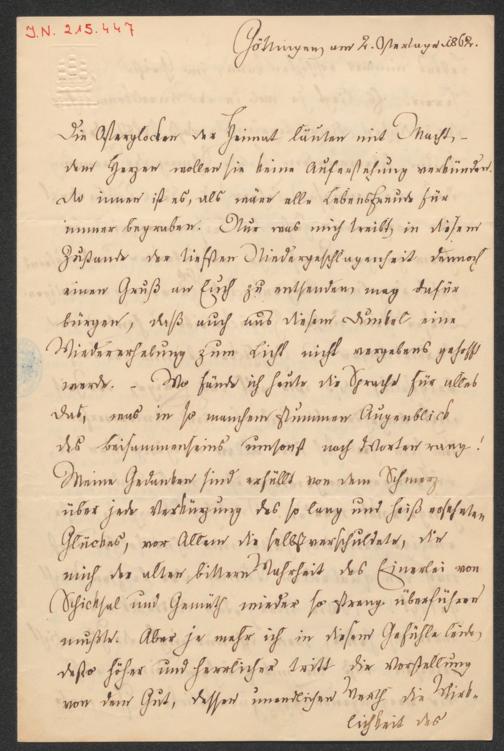 J.N. 215.447
Göttingen, am 2. Ostertage 1862.
Die Osterglocken der Heimat läuten mit Macht, –
dem Herzen wollen sie keine Auferstehung verkünden.
Da innen ist es, als wäre alle Lebensfreude für
immer begraben. Nur was mich treibt, in diesem
Zustande der tiefsten Niedergeschlagenheit dennoch
einen Gruß an Euch zu entsenden, mag dafür
bürgen, daß auch aus diesem Dunkel eine
Wiedererhebung zum Licht nicht vergebens gehofft
werde. – Wo fände ich heute die Sprache für alles
das, was in so manchem stummen Augenblick
des Beisammenseins umsonst nach Worten rang!
Meine Gedanken sind erfüllt von dem Schmerz
über jede Verkürzung des so lang und heiß ersehnten
Glückes, vor Allem die selbstverschuldete, die
mich der alten bittern Wahrheit des Einerlei von
Schicksal und Gemüth wieder so streng überführen
mußte. Aber je mehr ich in diesem Gefühle leide,
desto höher und herrlicher tritt die Vorstellung
von dem Gut, dessen unendlichen Werth die Wirk-
lichkeit des